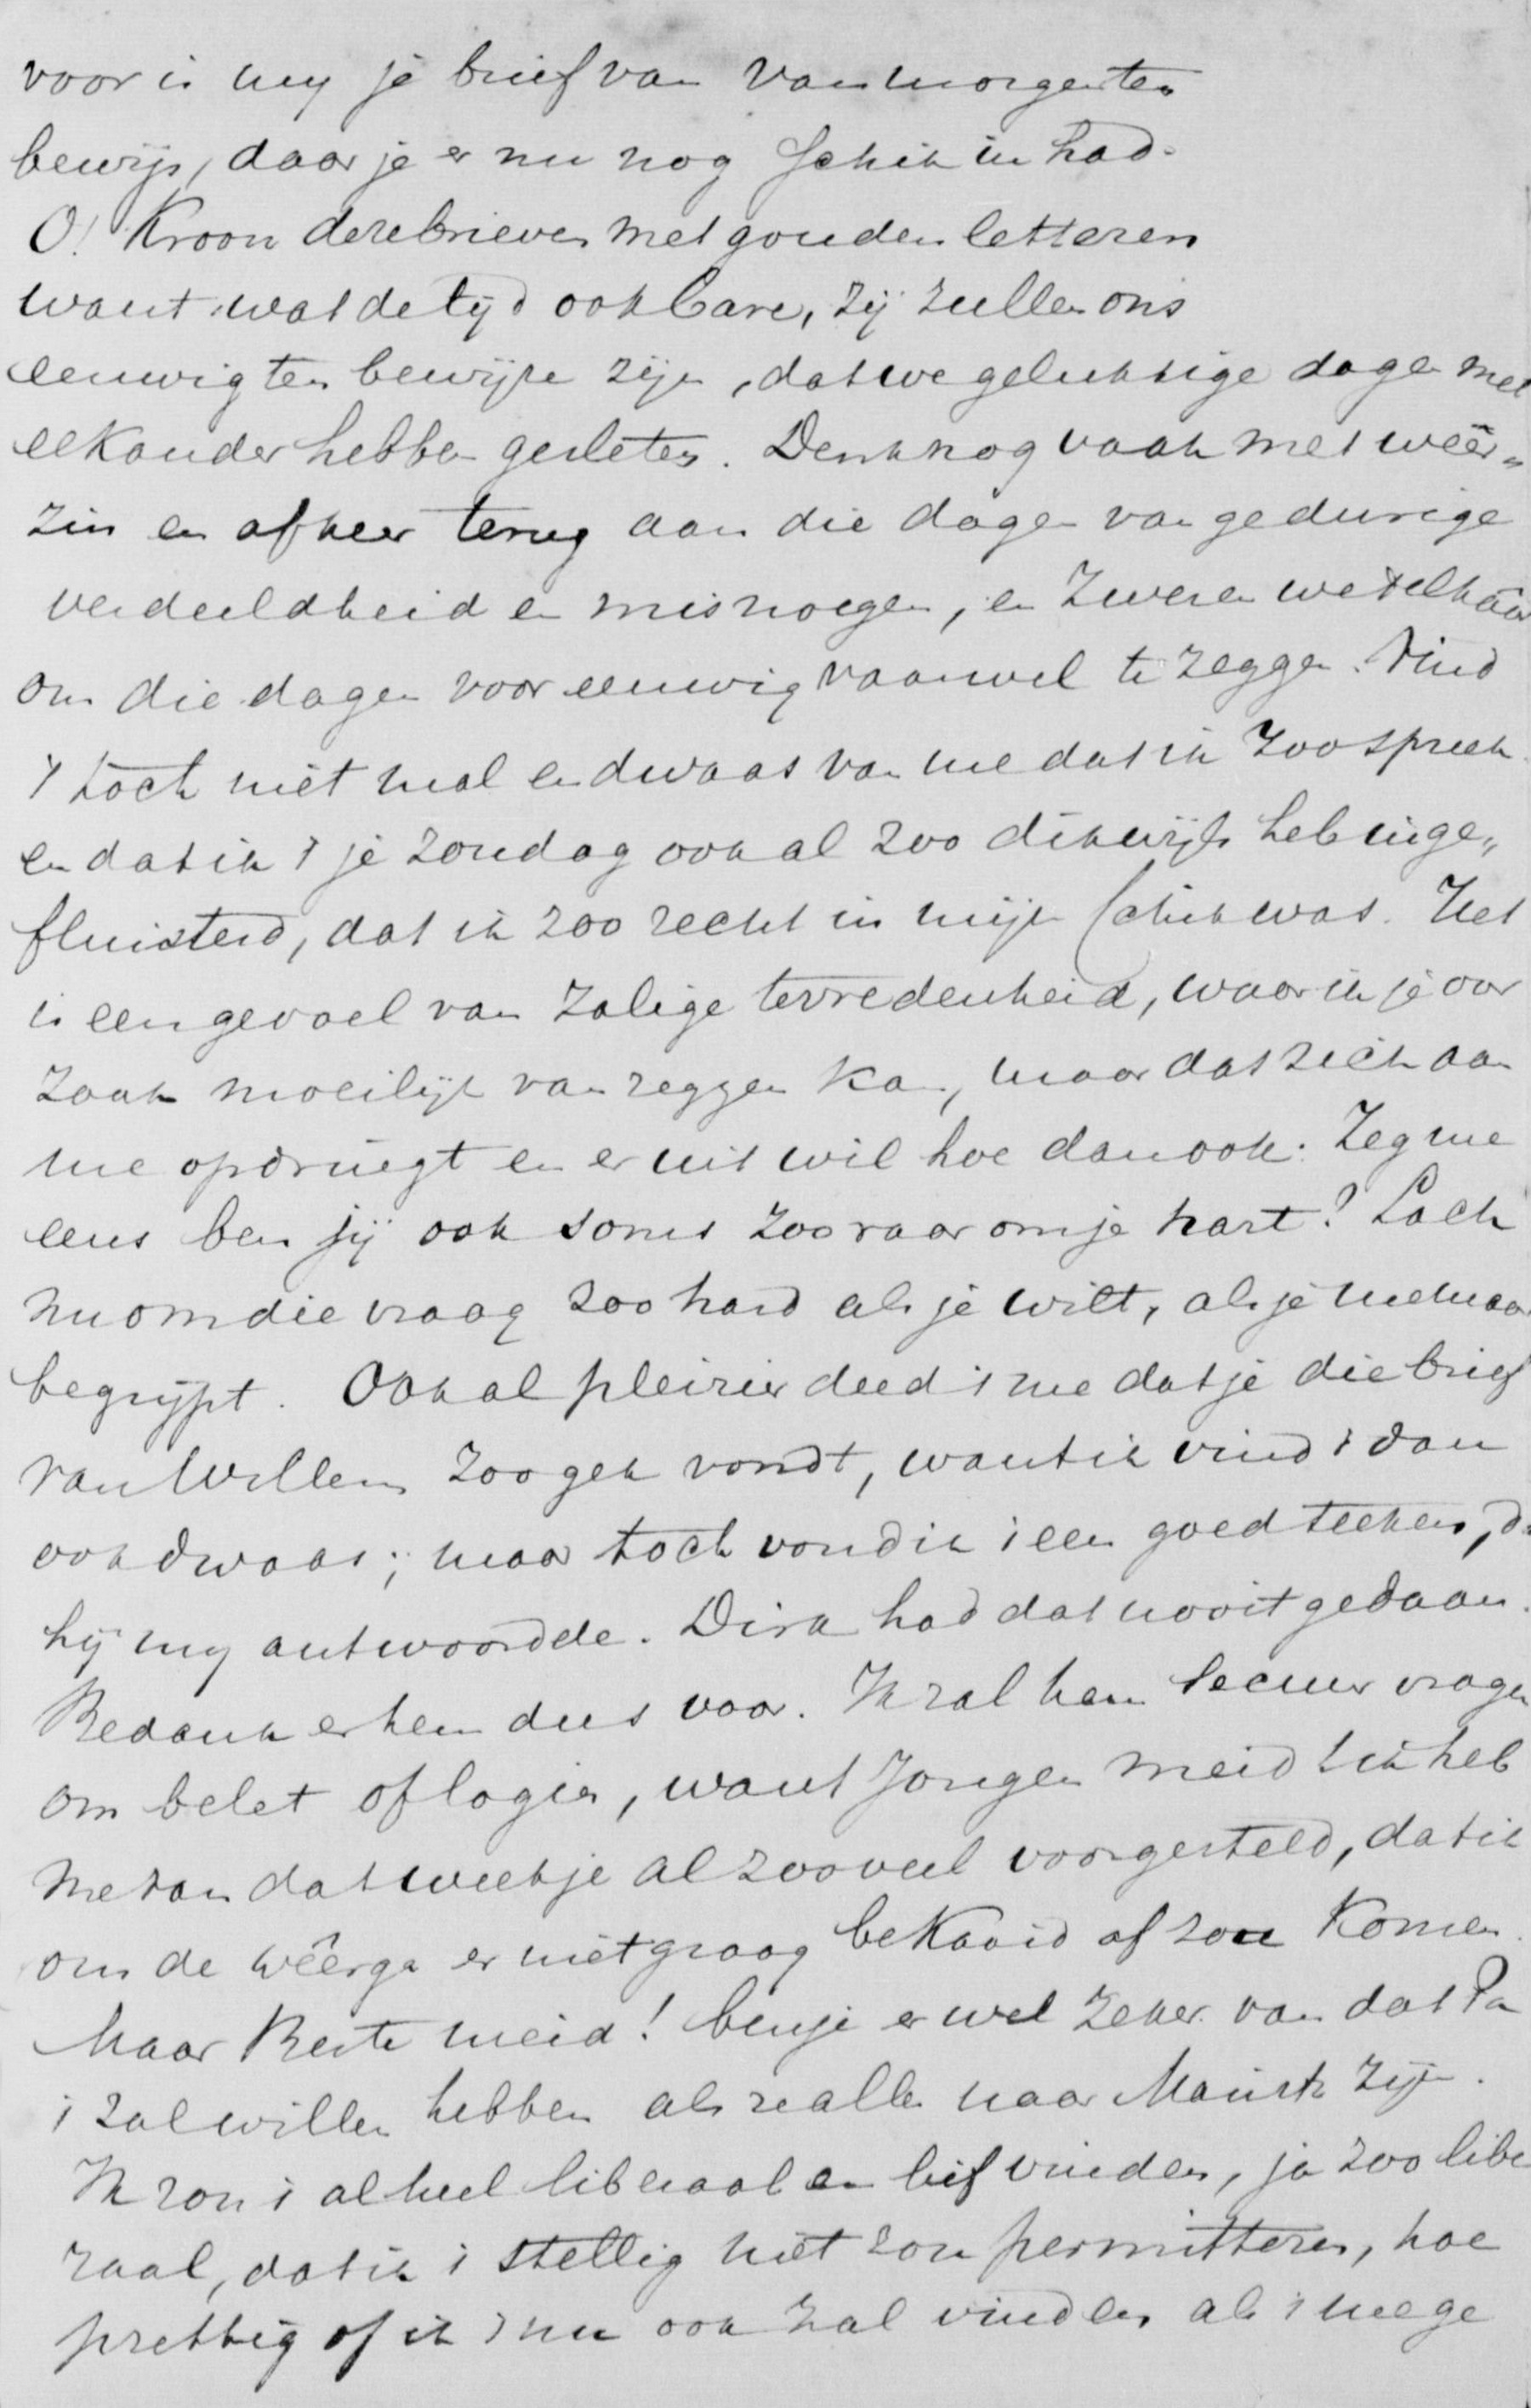 voor is my je brief van vanmorgen ten
bewijs, daar je er nu nog schik in had.
O! Kroon deze brieven met gouden letteren
want wat de tijd ook bare, zij zullen ons
eeuwig ten bewijze zijn, dat we gelukkige dagen met
elkander hebben gesleten. Denk nog vaak met weêr„
zin en afkeer terug aan die dagen van gedurige
verdeeldheid en misnoegen, en zweren we telkaar
om die dagen voor eeuwig vaarwel te zeggen. Vind
't toch niet mal en dwaas van me dat ik zoo spreek
en dat ik 't je Zondag ook al zoo dikwijls heb inge„
fluisterd, dat ik zoo recht in mijn schik was. Het
is een gevoel van zalige tevredenheid, waar ik je oor
zaak moeilijk van zeggen kan, maar dat zich aan
me opdringt en er uit wil hoe dan ook. Zeg me
eens ben jij ook soms zoo raar om je hart? Lach
nu om die vraag zoo hard als je wilt, als je me maar
begrijpt. Ook al pleizier deed 't me dat je die brief
van Willem zoo gek vondt, want ik vind 't dan
ook dwaas; maar toch vond ik 't een goed teeken, d
hij my antwoordde. Dirk had dat nooit gedaan.
Bedank er hem dus voor. Ik zal hem secuur vragen
om belet of logies, want Jongen meid ik heb
me van dat weekje al zooveel voorgesteld, dat ik
om de weêrga er niet graag bekaaid af zou komen.
Maar Beste meid! ben je er wel zeker van dat Pa
't zal willen hebben als ze allen naar Maastr zijn.
Ik zou 't al heel liberaal en lief vinden, ja zoo libe
raal, dat ik 't stellig niet zou permitteren, hoe
prettig of ik 't nu ook zal vinden als 't mege